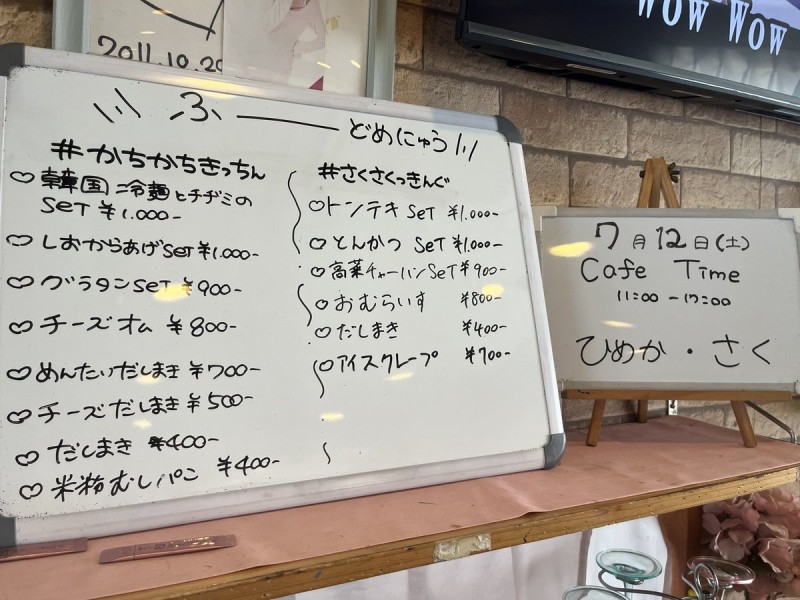 WOW WOW
2011.10.29
ふーどめにゅう
#かちかちきっちん
♡韓国冷麺とチヂミの
SET ¥1.000-
♡しおからあげSET ¥1.000-
♡グラタンSET ¥900-
♡チーズオム ¥800-
♡めんたいだしまき ¥700-
♡チーズだしまき ¥500-
♡だしまき ¥400-
♡米粉むしパン ¥400-
#さくさくっきんぐ
○トンテキ SET ¥1.000-
○とんかつ SET ¥1.000-
○高菜チャーハンSET ¥900-
○おむらいす ¥800-
○だしまき ¥400-
○アイスクレープ ¥700-
7月12日(土)
Cafe Time
11:00-17:00
ひめか・さく